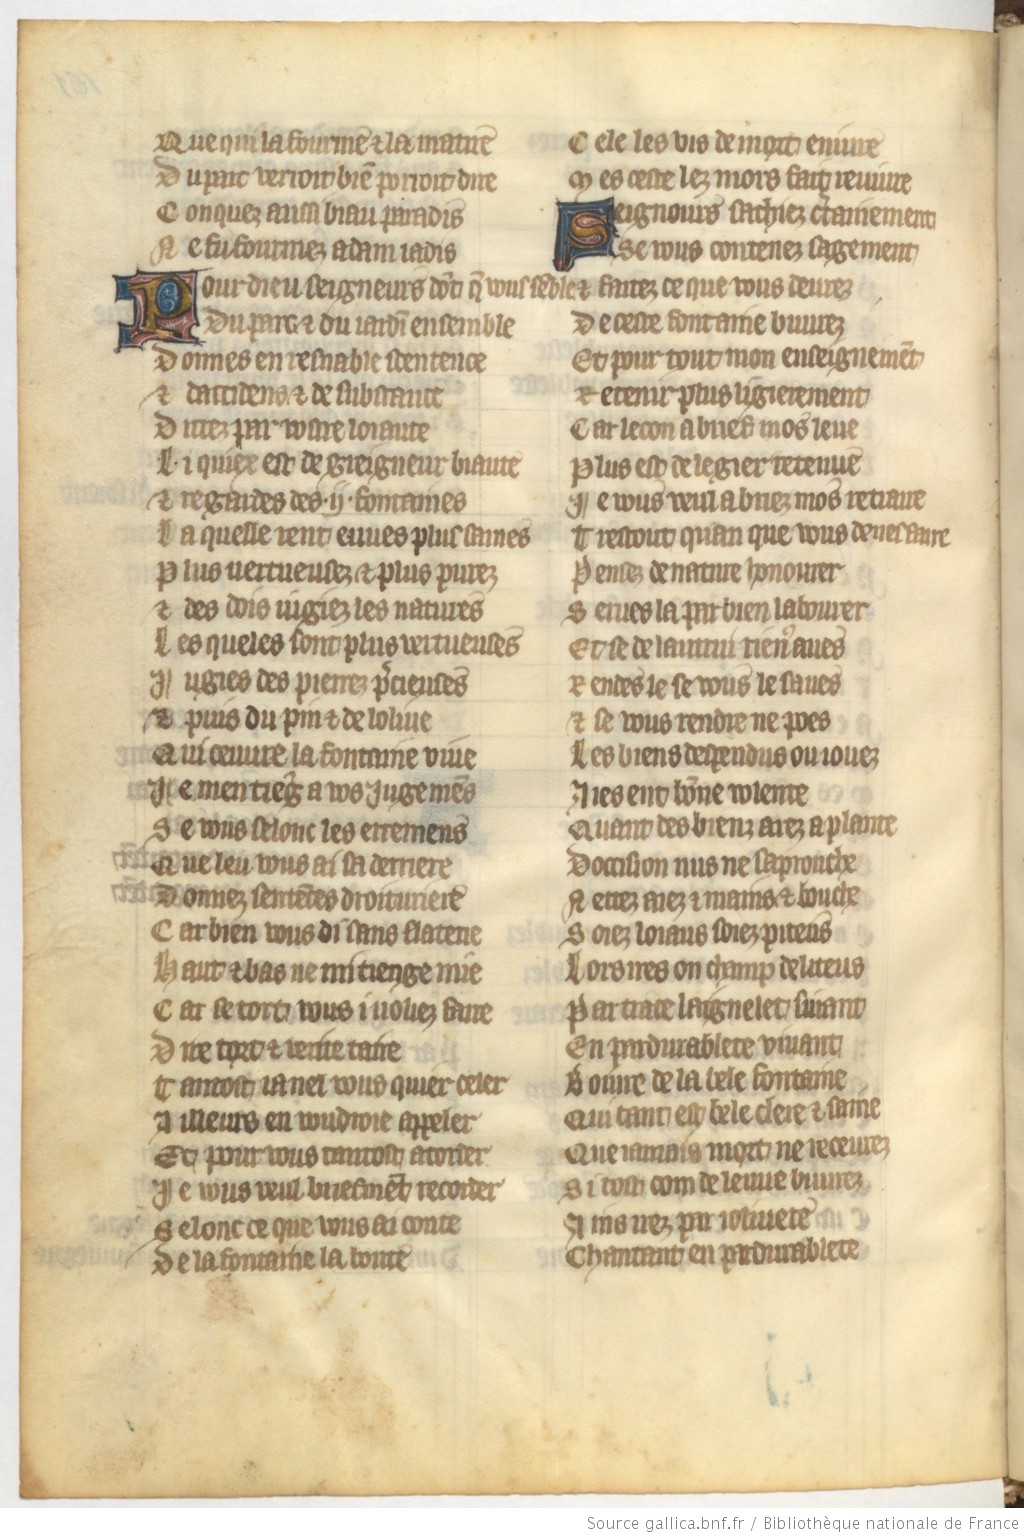 Que qui la fourme ⁊ la matire
Du parc verroit biē porroit dire
Conquez ausi biau paradis
Ne fu fourmez adam iadis
Pour dieu seigneurs dōt q̄ vous sēble
Du parc ⁊ du iardī ensemble
Donnes en resnable sentence
⁊ daccidens ⁊ de substance
Dittez par vostre loiaute
Li quiex est de greigneur biaute
⁊ regardes des .ij. fontaines
La quelle rent euues plus saines
Plus vertueusez ⁊ plus purez
⁊ des dois iugiez les natures
Les queles sont plus vertueuses
Jugies des pierrez p̄cieuses
⁊ puis du pin ⁊ de loliue
Qui cueuure la fontaine viue
Je men tieg̃ a vos Jugemēs
Se vous selonc les erremens
Que leu vous ai sa derriere
Donnez sentēces droituriere
Car bien vous di sans flaterie
Haut ⁊ bas ne mi tienge mie
Car se tort vous i voliez faire
Dire tort ⁊ verite taire
Tantost ia nel vous quier celer
Ailleurs en voudroie appeler
Et pour vous tantost acorder
Je vous veul briefmēt recorder
Selonc ce que vous ai conte
De la fontaine la bonte
Cele les vis de mort eniure
Mes ceste lez mors fait reuiure
Seignours sachiez c̄tainement
Se vous contenez sagement
⁊ faitez ce que vous deurez
De ceste fontaine buurez
Et pour tout mon enseignemēt
Retenir plus ligierement
Car lecon a brief mos leue
Plus est de legier retenue
Je vous veul a briez mos retraire
Trestout quan que vous deues faire
Pensez de nature honourer
Serues la par bien labourer
Et se de lautrui riens aues
Rendes le se vous le saues
⁊ se vous rendre ne poes
Les biens despendus ou iouez
Aies ent bōne volente
Quant des bienz arez a plante
Doccision nus ne saprouche
Nettez aiez ⁊ mains ⁊ bouche
Soiez loiaus soiez piteus
Lors ires ou champ deliteus
Par trace laignelet siuant
En pardurablete viuant
Boiure de la bele fontaine
Qui tant est bele clere ⁊ saine
Que iamais mort ne receurez
Si tost com de leuue buurez
Ains irez par ioliuete
Chantant en pardurablete
Source gallica.bnf.fr / Bibliothèque nationale de France